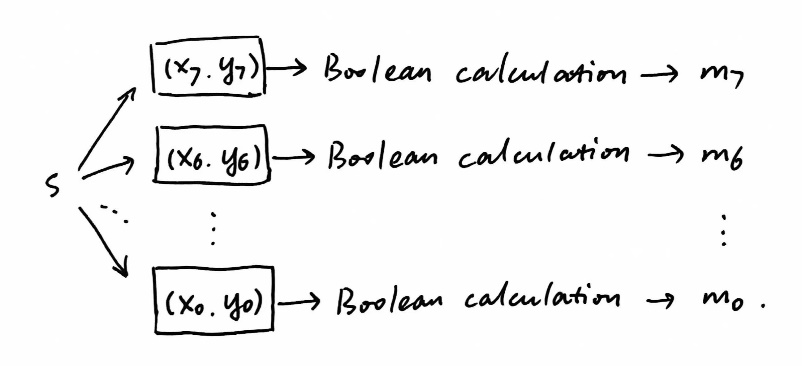 (x₇. y₇) → Boolean calculation → m₇
(x₆. y₆) → Boolean calculation → m₆
s
⋮ ⋮
(x₀. y₀) → Boolean calculation → m₀.